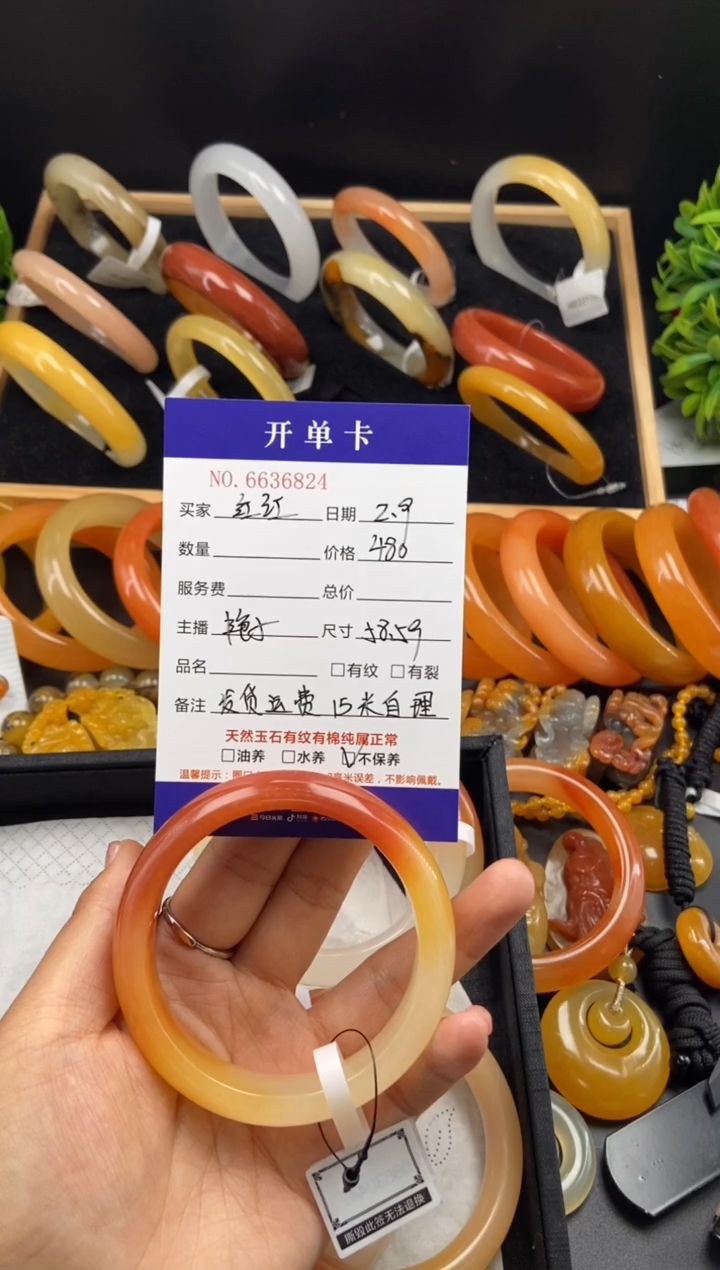 开单卡
NO.6636824
买家 红红 日期 2.9
数量 价格 480
服务费 总价
主播 尺寸 58.59
品名 □有纹 □有裂
备注 发货运费 15米自理
天然玉石有纹有棉纯属正常
□油养 □水养 ☑不保养
温馨提示：圈口 毫米误差，不影响佩戴。
今日头条 抖音
撕毁此签无法退换